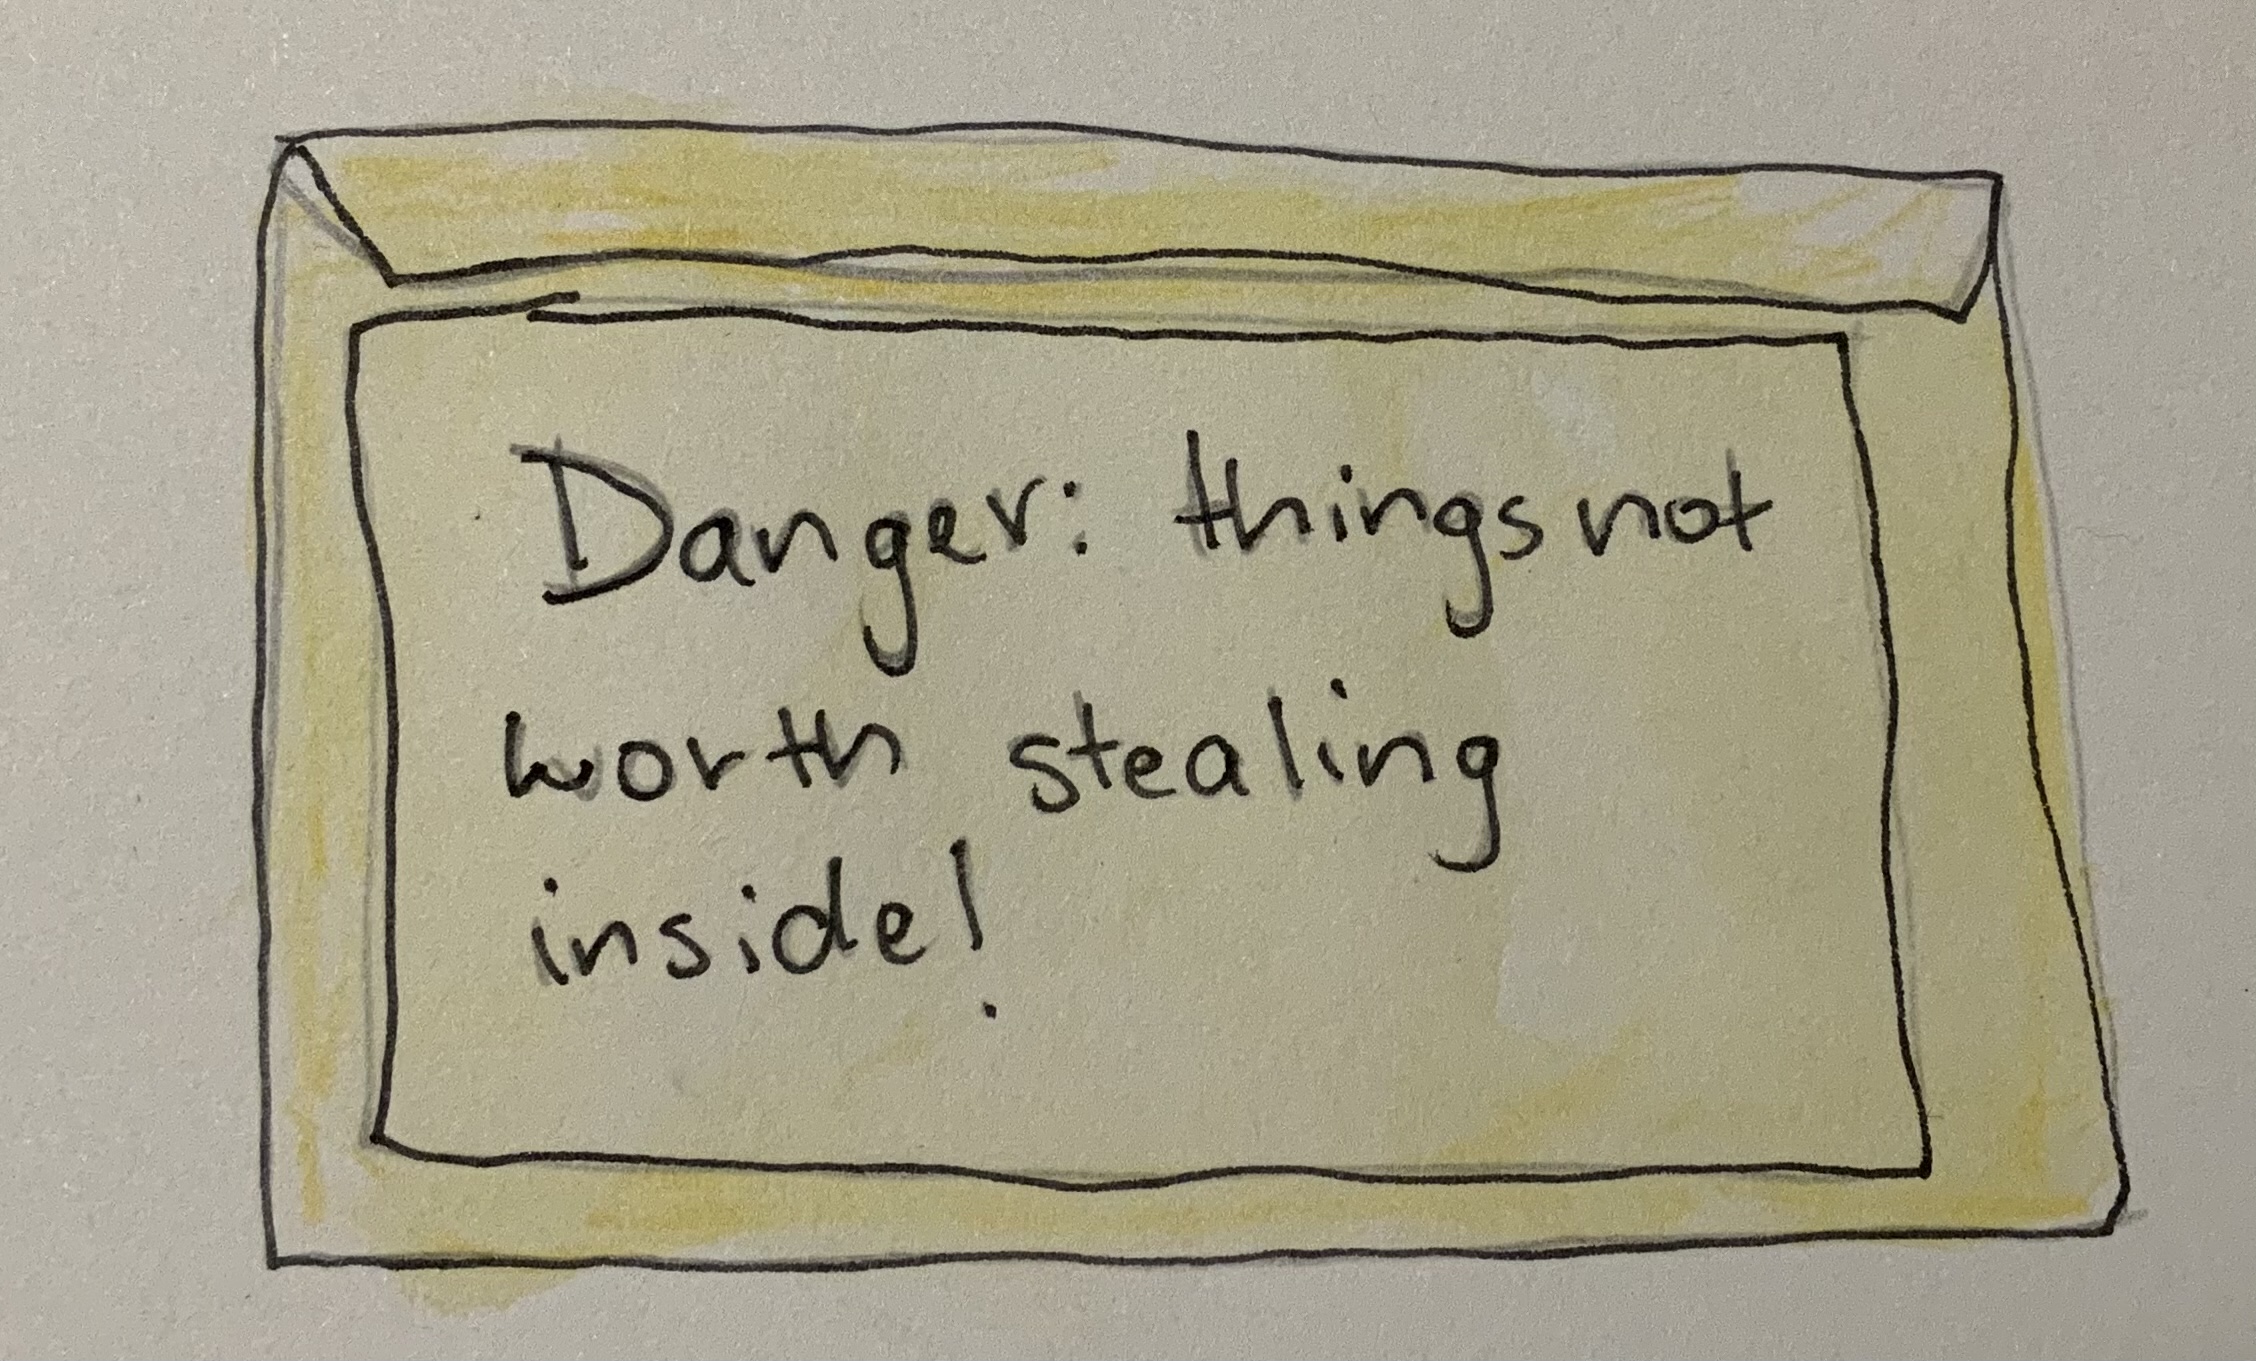 Danger: things not
worth stealing
inside!